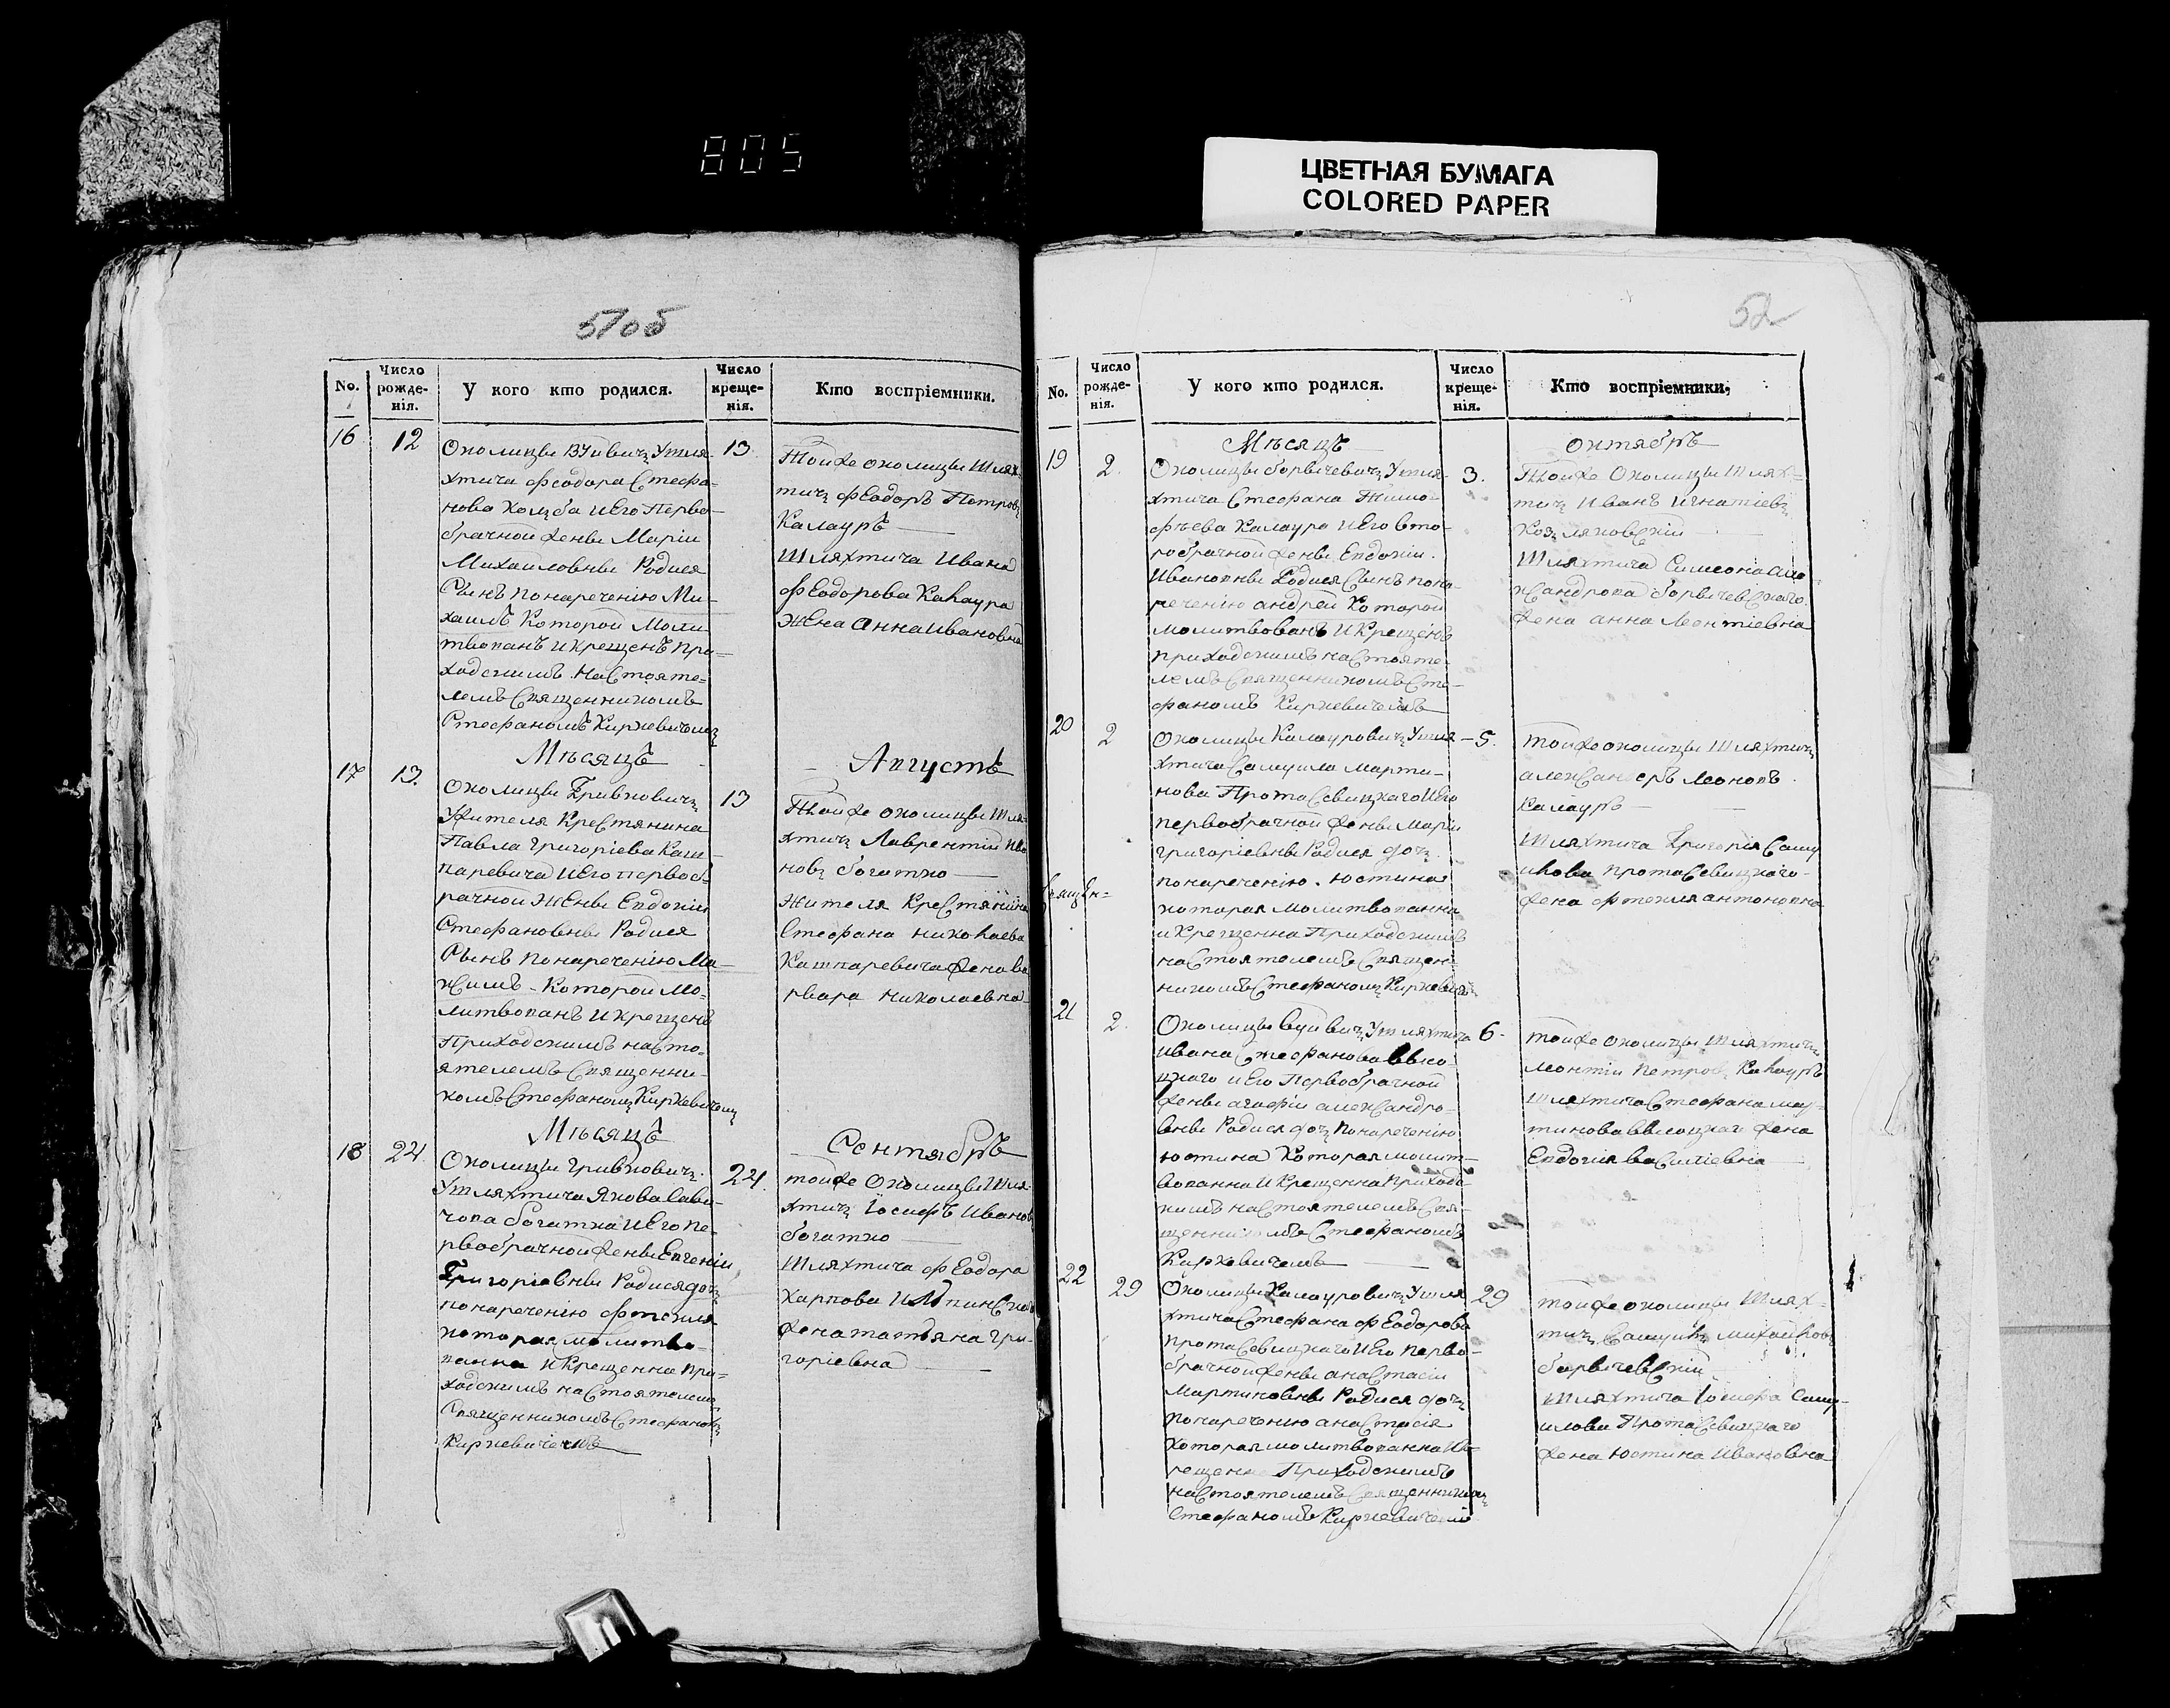 805
ЦВЕТНАЯ БУМАГА
COLORED PAPER
51об
No.
Число рожденія.
У кого кто родился.
Число крещенія.
Кто воспріемники.
16
12
Околицы Вуйвичъ У шля-
хтича Феодора Стефа-
нова Холѣба и Его Перво-
брачной Жены Маріи
Михайловны Родися
Сынъ по нареченію Ми-
хаилъ Которой Моли-
твованъ и крещенъ при-
ходскимъ Настояте-
лемъ Священникомъ
Стефаномъ Киркевичемъ
13
Той же околицы Шлях-
тичъ Феодоръ Петровъ
Калауръ
Шляхтича Ивана
Феодорова Калаура
Жена Анна Ивановна
Мѣсяцъ
Августъ
17
13.
Околицы Гривковичъ
У жителя Крестянина
Павла Григоріева Каш-
паревича и Его первоб-
рачной Жены Евдокіи
Стефановны Родися
Сынъ по нареченію Ма-
ксимъ Которой Мо-
литвованъ и крещенъ
Приходскимъ насто-
ятелемъ Священни-
комъ Стефаномъ Киркевичемъ
13
Той же околицы Шля-
хтичъ Лаврентій Ива
новъ богатко
Жителя Крестянина
Стефана николаева
Кашпаревича Жена ва
рвара николаевна
Мѣсяцъ
Сентябръ
18
24.
Околицы Гривковичъ
У шляхтича Якова Сави-
чова богатка и Его пе-
рвобрачной жены Евгеніи
Григоріевны Родися дочъ
по нареченію Фтекля
которая молитво-
ванна и Крещенна при-
ходскимъ настоятелемъ
Священникомъ Стефаномъ
Киркевичемъ
24.
той же Околицы Шля-
хтичъ Іосифъ Иванов
богатко
Шляхтича Феодора
Карпова
Жена татьяна Гри-
горіевна
52
No.
Число рожденія.
У кого кто родился.
Число крещенія.
Кто воспріемники.
Мѣсяцъ
октябръ
19
2.
Околицы борвичевичъ У шля-
хтича Стефана Тимо-
фѣева Калаура и Его вто-
робрачной жены Евдокіи
Ивановны Родися Сынъ по на-
реченію андрей Которой
молитвованъ и Крещенъ
приходскимъ настояте-
лемъ Священникомъ Сте-
фаномъ Киркевичемъ
3.
Той же Околицы Шлях-
тичъ Иванъ Игнатіевъ
Козляковскій
Шляхтича Симеона Але-
ксандрова борвичевскаго
жена анна Леонтіевна
20
2
Околицы Калауровичъ У шля-
хтича Самуила Марти-
нова Протасевицкаго и Его
первобрачной жены Маріи
григоріевны Родися дочъ
по нареченію Юстина
которая молитвованна
и Крещенна Приходскимъ
настоятелемъ Священ-
никомъ Стефаномъ Киркевичем
5.
той же околицы Шляхтичъ
александеръ Леоновъ
Калауръ
Шляхтича Григорія Саму
илова Протасевицкаго
жена Фтекля антоновна
21
2.
Околицы Вуйвичъ У шляхтича
Ивана Стефанова
и Его Первобрачной
жены агафіи александро-
вны Родися дочъ по нареченію
Юстина Которая молит-
вованна и Крещенна приход-
кимъ настоятелемъ Свя-
щенникомъ Стефаномъ
Киркевичемъ
6.
той же околицы Шляхтичъ
леонтій Петровъ Калауръ
Шляхтича Стефана мар-
тинова жена
Евдокія василіевна
22
29
Околицы Калауровичъ У шля
хтича Стефана Феодорова
протасевицкаго и Его перво-
брачной жены анастасіи
Мартиновны Родися дочъ
по нареченію анастасія
которая молитвованна и К-
рещенна Приходскимъ
настоятелемъ Священникомъ
Стефаномъ Киркевичемъ
29
той же околицы Шлях-
тичъ Самуилъ михайловъ
борвичевскій
Шляхтича Іосифа Саму-
илова Протасевицкаго
жена Юстина Ивановна